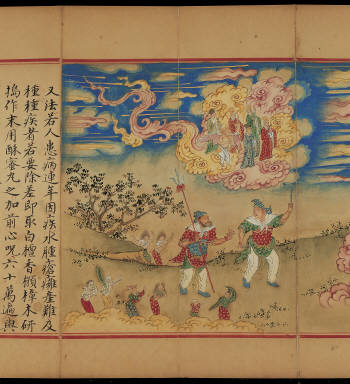 又法若人患病連年困疾水腫瘡癰產難及
種種疾者若要除差即取白檀香樟木研
搗作末用酥蜜丸之加前心呪六十萬遍與